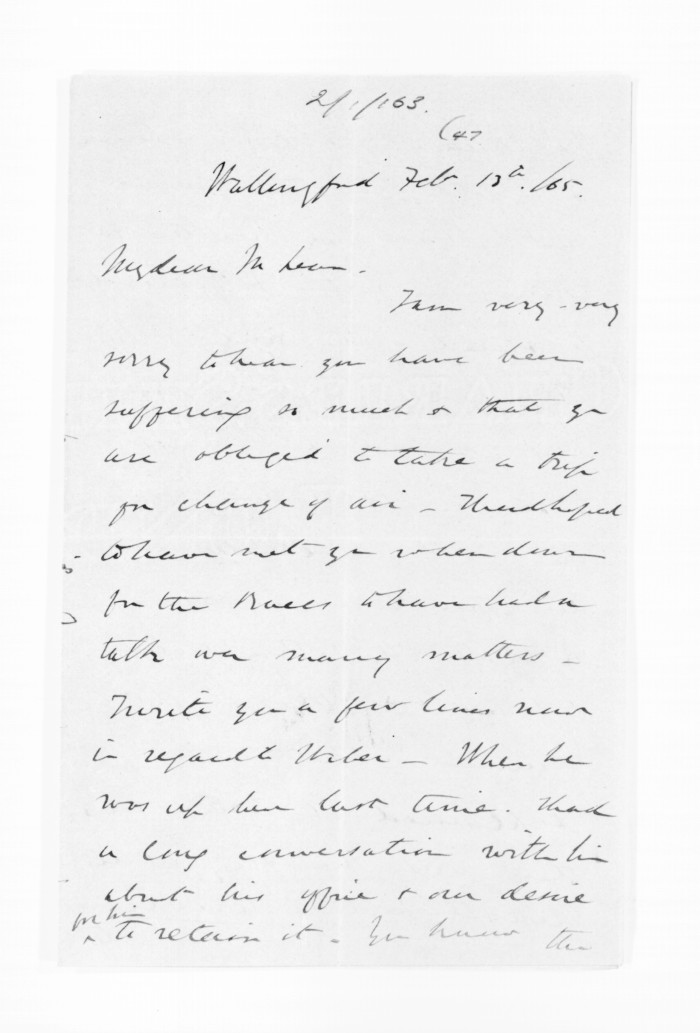 2/1/163.
(47
Wallingford Feb. 13th. /65.
My dear McLean.
I am very - very
sorry to hear you have been
suffering so much & that you
are obliged to take a trip
for change of air - I had hoped
to have met you when down
for the Races & to have had a
talk over many matters -
I write you a few lines now
in regard to Weber - When he
was up here last time. I had
a long conversation with him
about his office & our desire
for him
^ to retain it. You know the